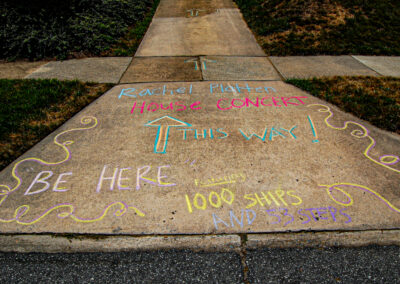 Rachel Platten
House Concert
This way!
Be here
1000 ships
and 33 steps